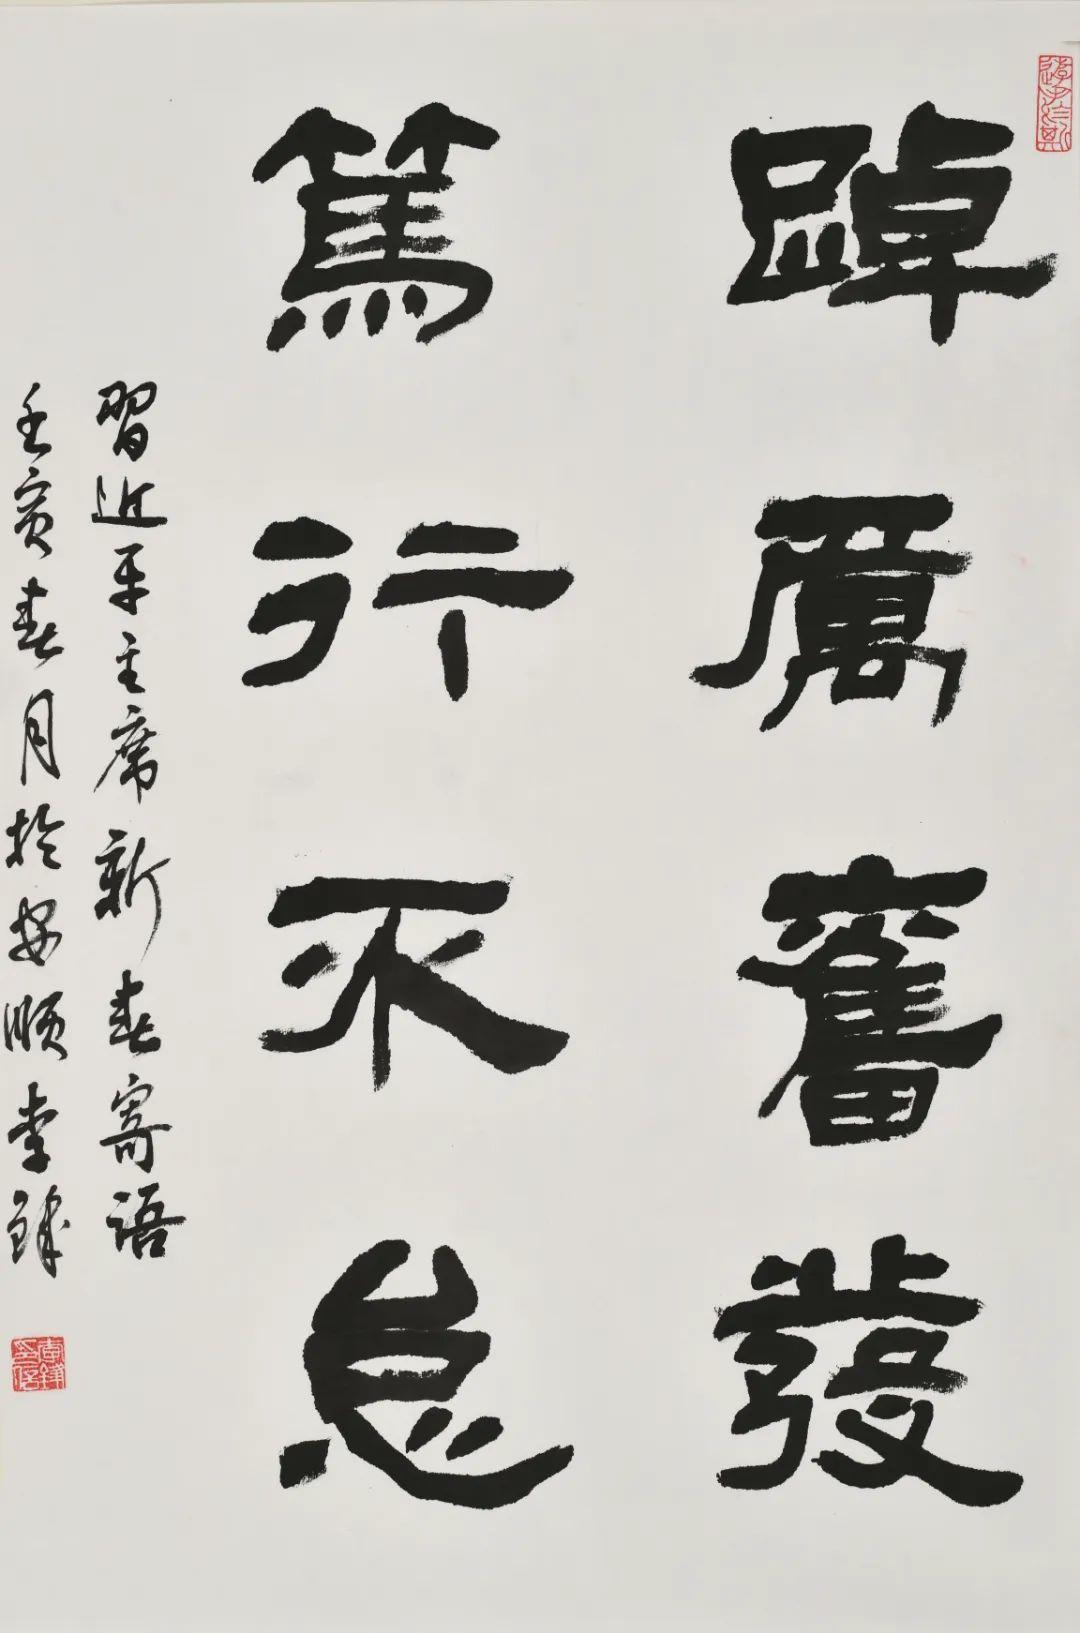 踔厲奮發
篤行不怠
習近平主席新春寄語
壬寅春月於安順李